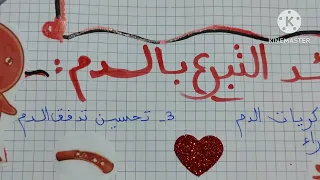 KINEMASTER
ـد التبرع بالدم :
كريات الدم
3- تحسين تدفق الدم
راء